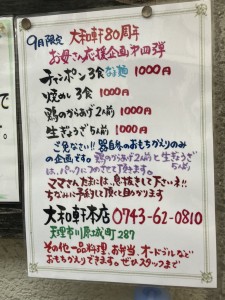 9月限定 大和軒80周年
お母さん応援企画第四弾
チャンポン3食 1000円
焼めし 3食 1000円
鶏のからあげ2人前 1000円
生ぎょうざ5人前 1000円
ごめんなさい!! 器各自のおもちかえりのみ
の企画です。鶏のからあげ2人前と生ぎょうざ
は、パックにつめてさして頂きます。
ママさん たまには、息抜きして下さいネ!!
ちなみに予約して頂くと助かります
大和軒本店 0743-62-0810
天理市川原城町287
その他一品料理、お弁当、オードブルなど
おもちかえりできます。ぜひスタッフまで